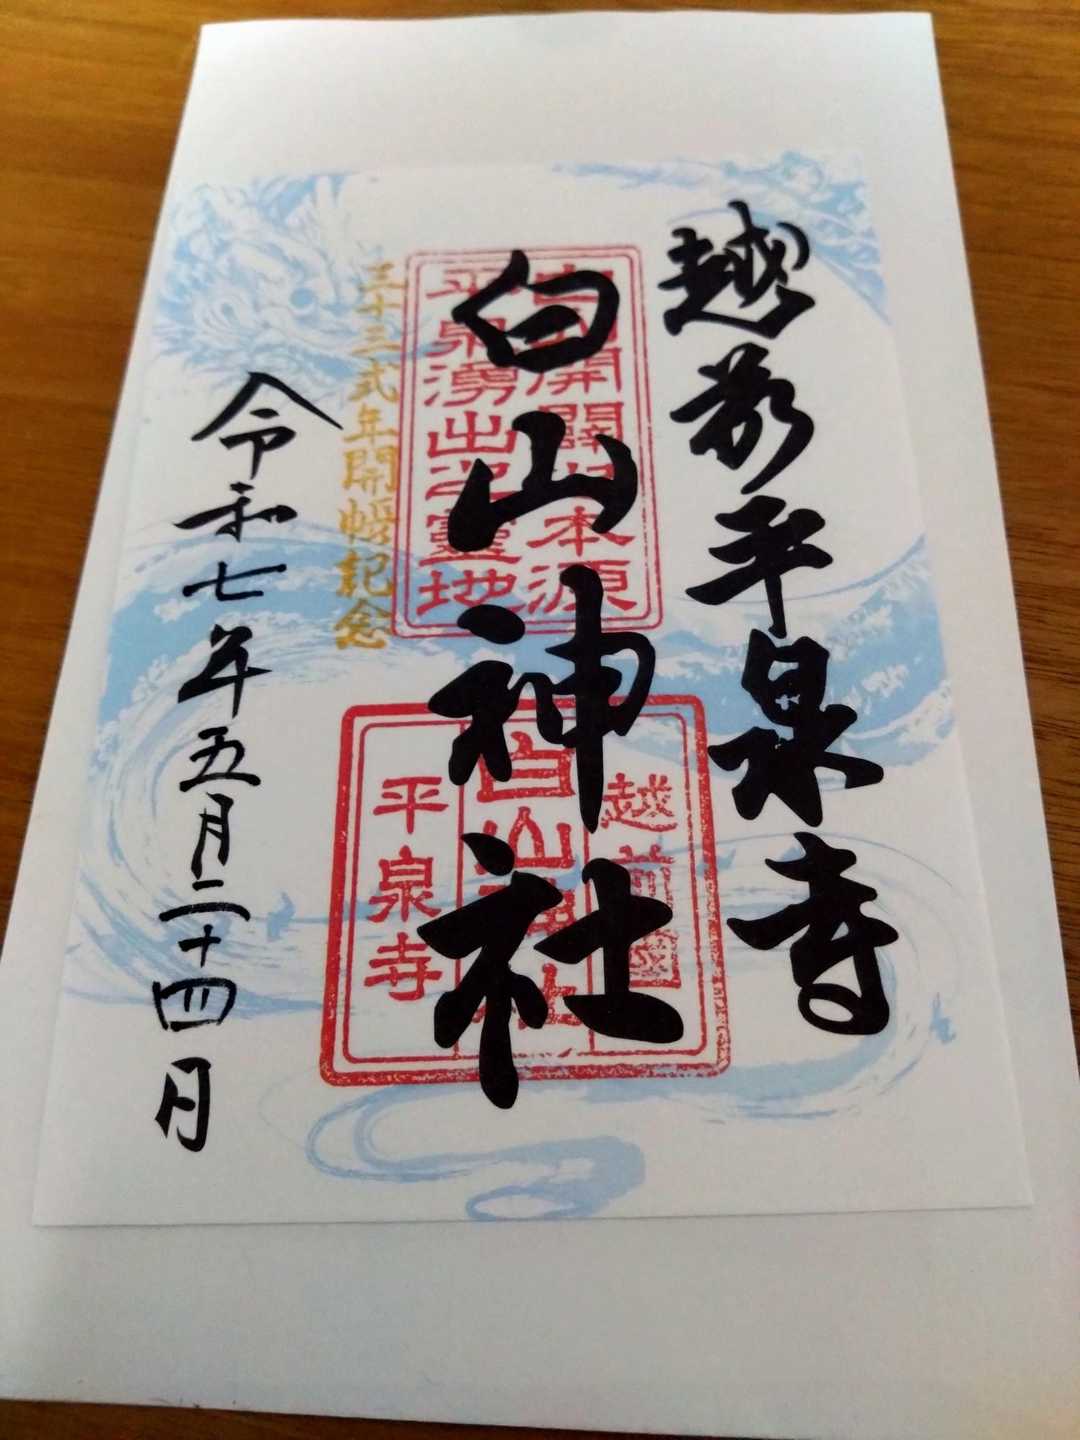 越前平泉寺
白山神社
開闢
本源
平泉湧出之靈地
越前國
白山神社
平泉寺
三十三式年開帳記念
令和七年五月二十四日